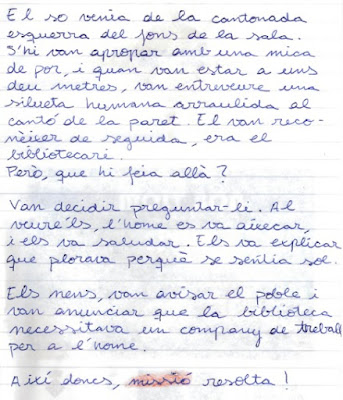 El so venia de la cantonada
esquerra del fons de la sala.
S'hi van apropar amb una mica
de por, i quan van estar a uns
deu metres, van entreveure una
silueta humana arraulida al
cantó de la paret. El van reco-
nèixer de seguida, era el
bibliotecari.
Però, que hi feia allà?
Van decidir preguntar-li. Al
veure'ls, l'home es va aixecar,
i els va saludar. Els va explicar
que plorava perquè se sentia sol.
Els nens, van avisar el poble i
van anunciar que la biblioteca
necessitava un company de treball
per a l'home.
Així doncs, missió resolta!